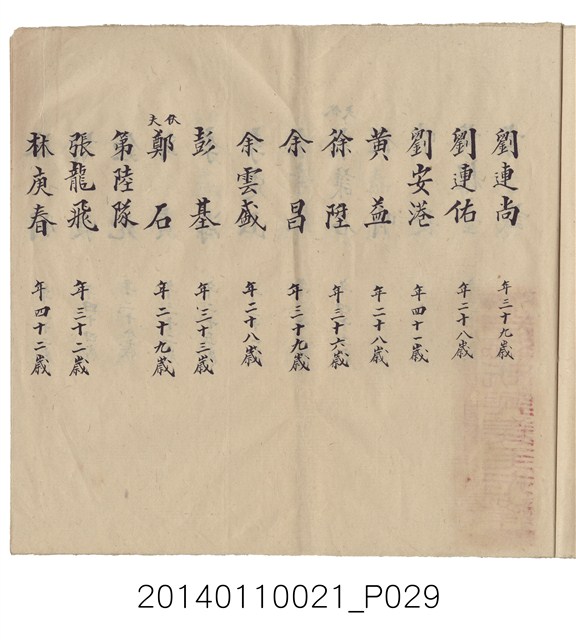 劉連尚 年三十九歲
劉連佑 年二十八歲
劉安港 年四十一歲
黃益 年二十八歲
徐陞 年三十六歲
余昌 年三十九歲
余雲盛 年二十八歲
彭基 年三十三歲
伙夫 鄭石 年二十九歲
第陸隊
張龍飛 年三十二歲
林庚春 年四十二歲
20140110021_P029